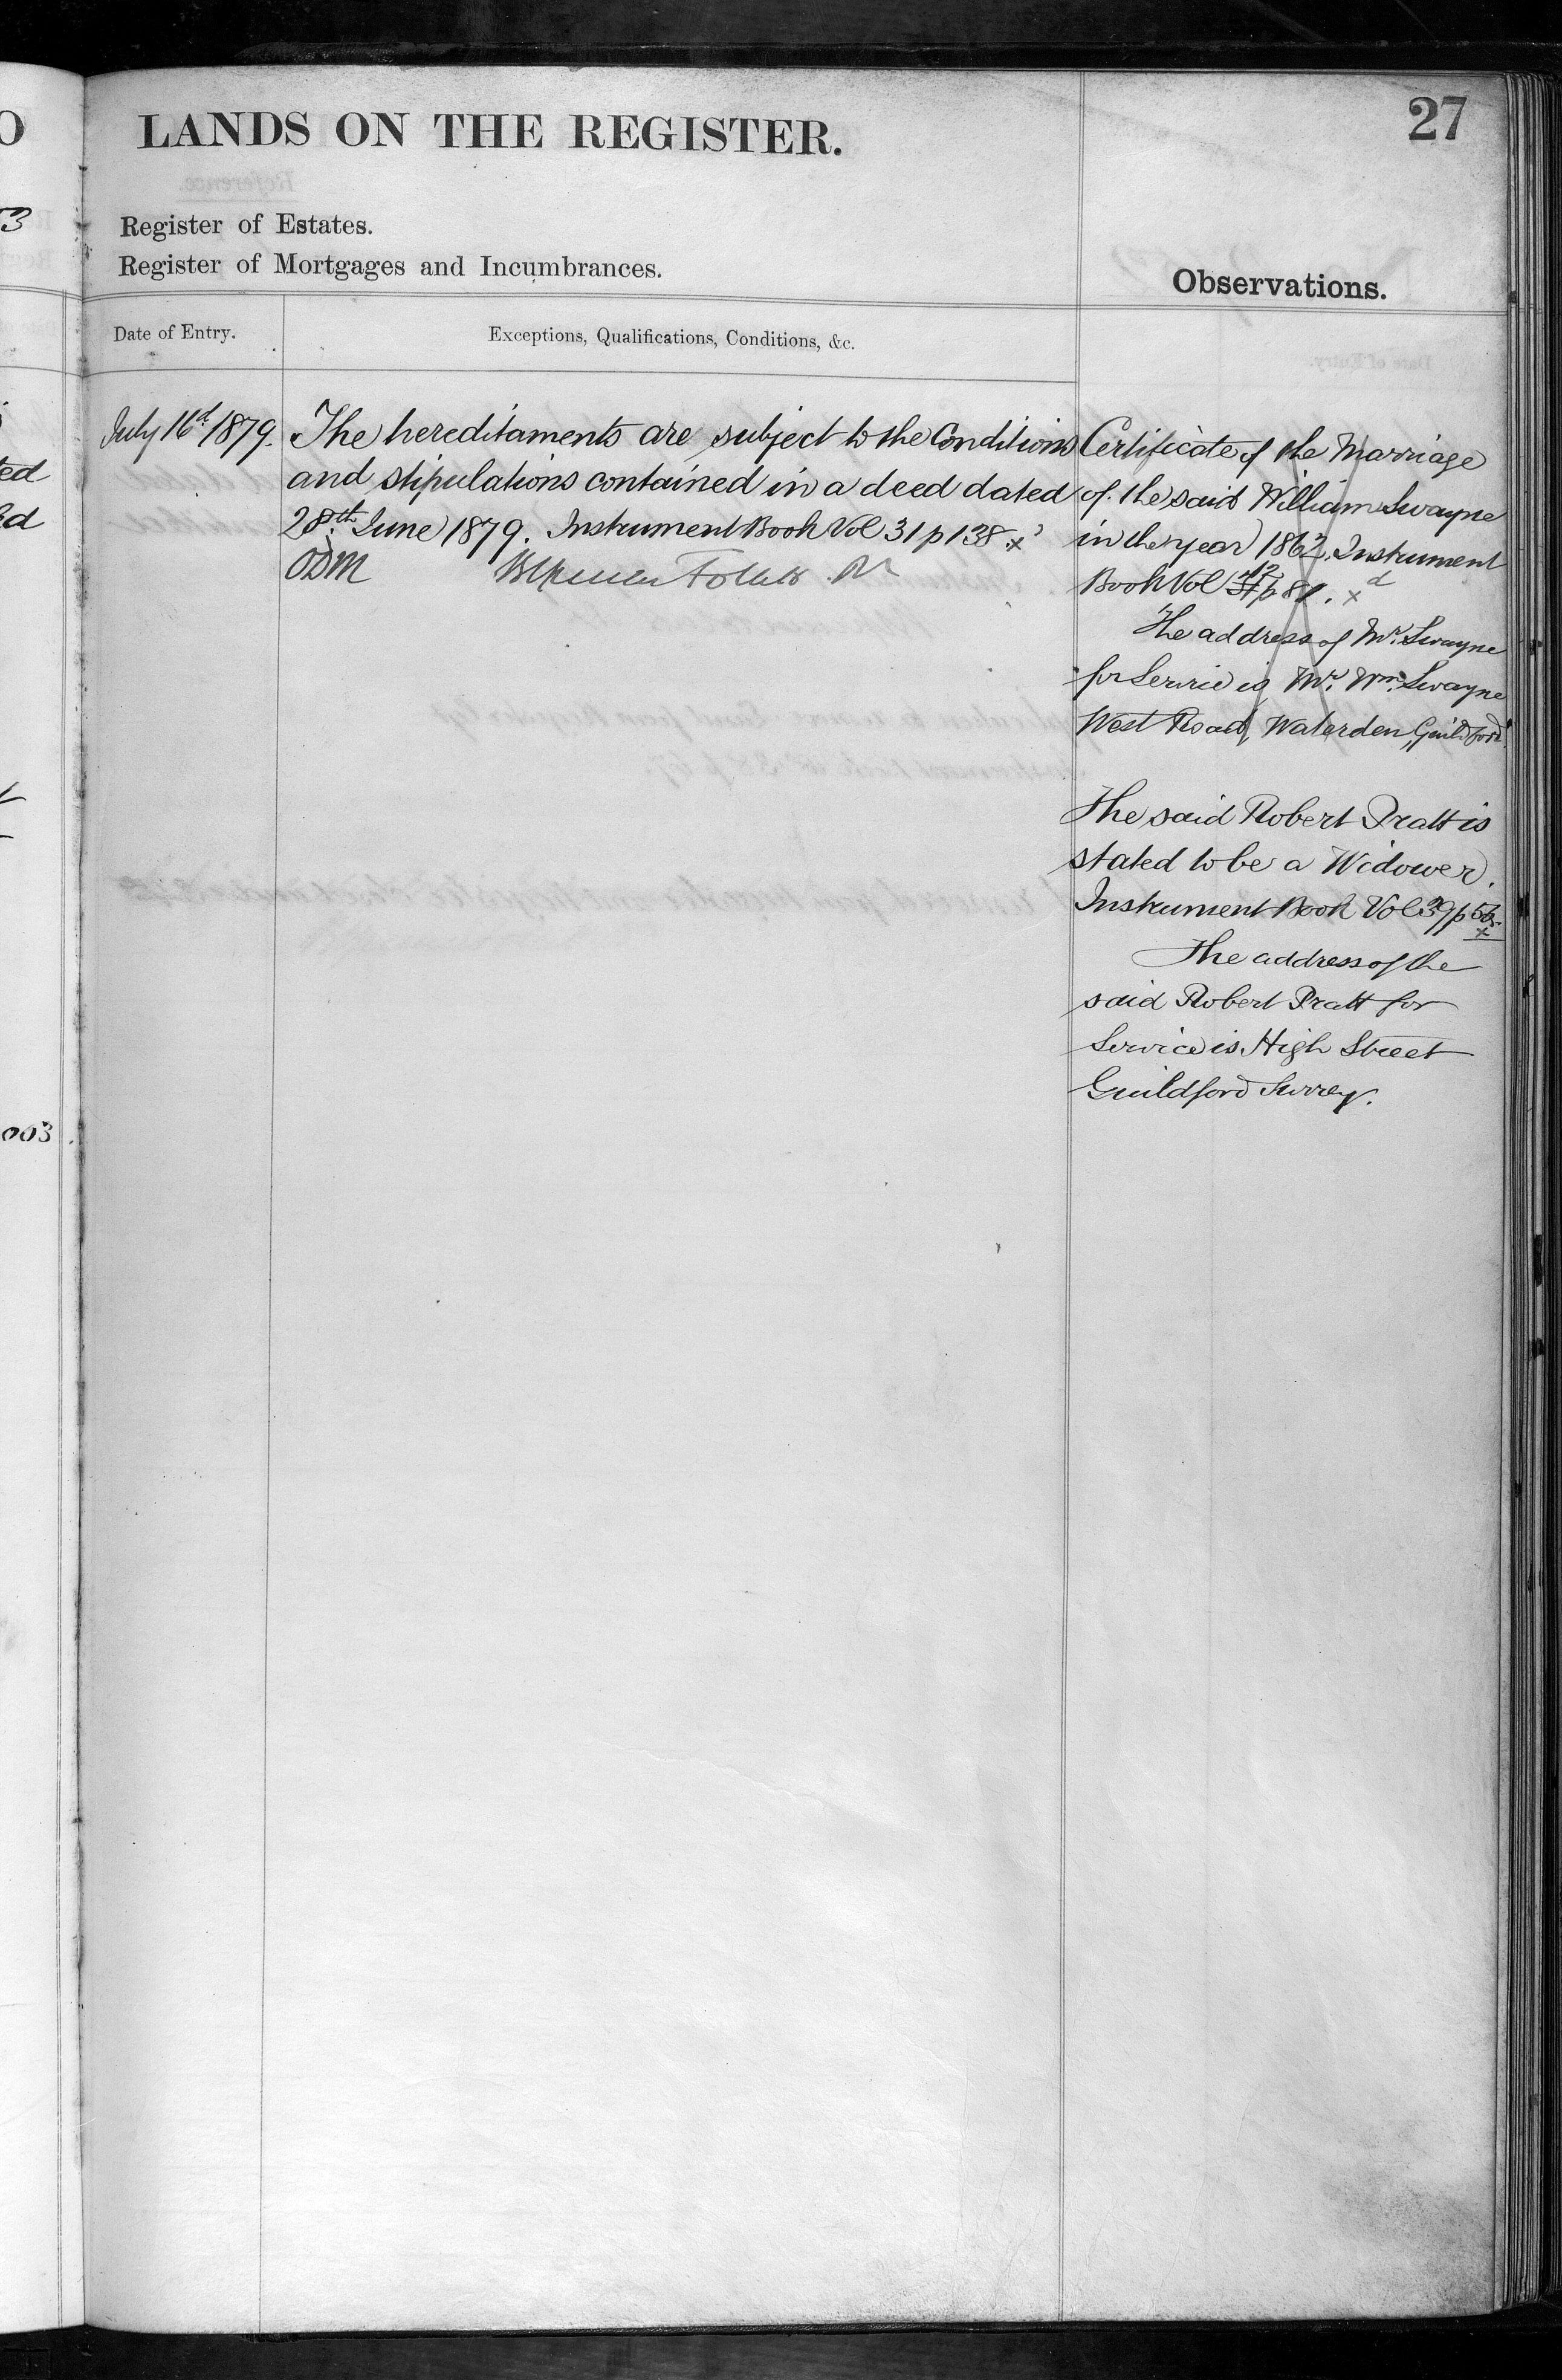 27
LANDS ON THE REGISTER.
Register of Estates.
Register of Mortgages and Incumbrances.
Observations.
Date of Entry.
Exceptions, Qualifications, Conditions, &c.
July 16th 1879.
The hereditaments are subject to the Conditions
and stipulations contained in a deed dated
28th June 1879. Instrument Book Vol 31 p 138. x
ODM
Certificate of the Marriage
of the said William Swayne
in the year 1862. Instrument
Book Vol 12 p 81. x d
The address of Mr. Swayne
for Service is Mr. Wm. Swayne
West Road, Waterden, Guildford
The said Robert Pratt is
stated to be a Widower.
Instrument Book Vol 39 p 56. x
The address of the
said Robert Pratt for
Service is High Street
Guildford Surrey.
53
ted
ed
003